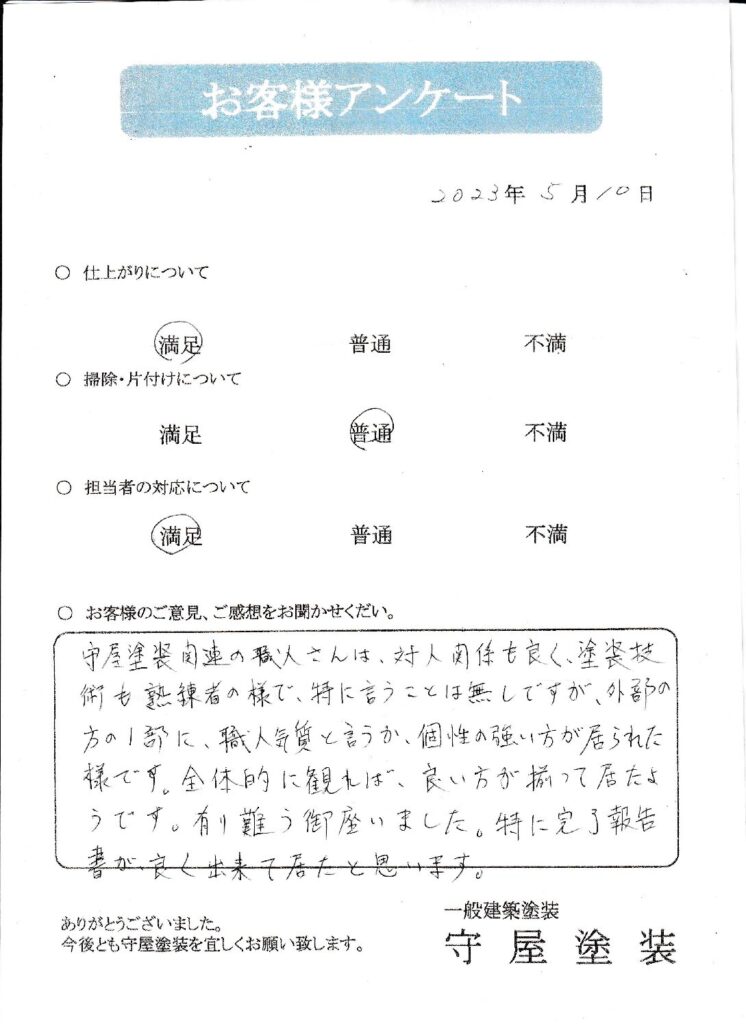 お客様アンケート
2023年 5月10日
○ 仕上がりについて
満足 普通 不満
○ 掃除・片付けについて
満足 普通 不満
○ 担当者の対応について
満足 普通 不満
○ お客様のご意見、ご感想をお聞かせくだい。
守屋塗装関連の職人さんは、対人関係も良く、塗装技
術も熟練者の様で、特に言うことは無しですが、外部の
方の1部に、職人気質と言うか、個性の強い方が居られた
様です。全体的に観れば、良い方が揃って居たよ
うです。有り難う御座いました。特に完了報告
書が、良く出来て居たと思います。
ありがとうございました。
今後とも守屋塗装を宜しくお願い致します。
一般建築塗装
守屋塗装